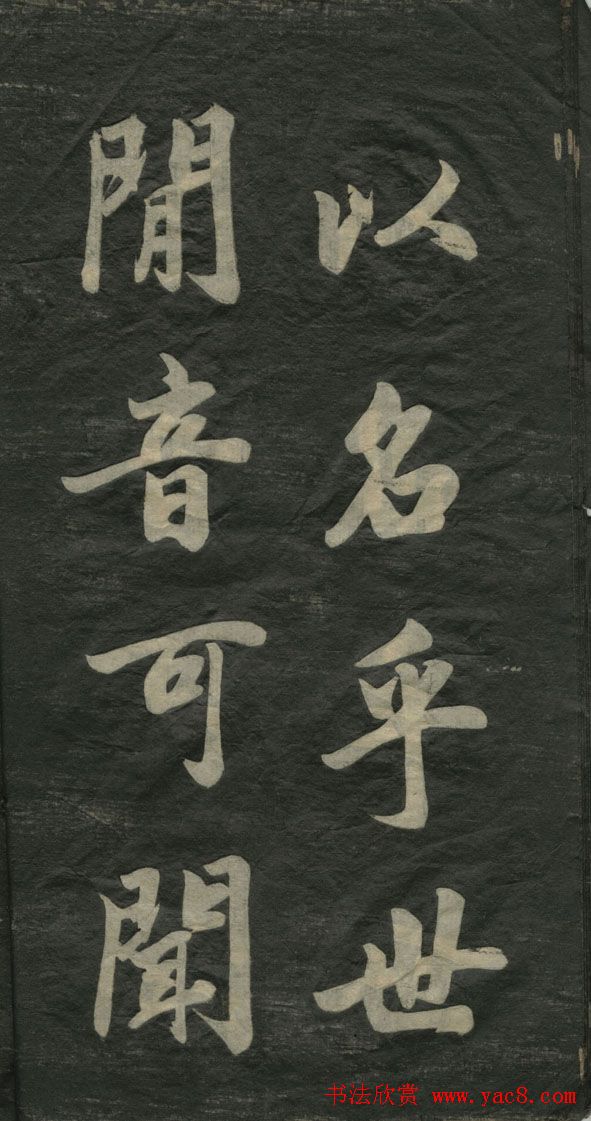 以名乎世
閒音可聞
书法欣赏 www.yac8.com